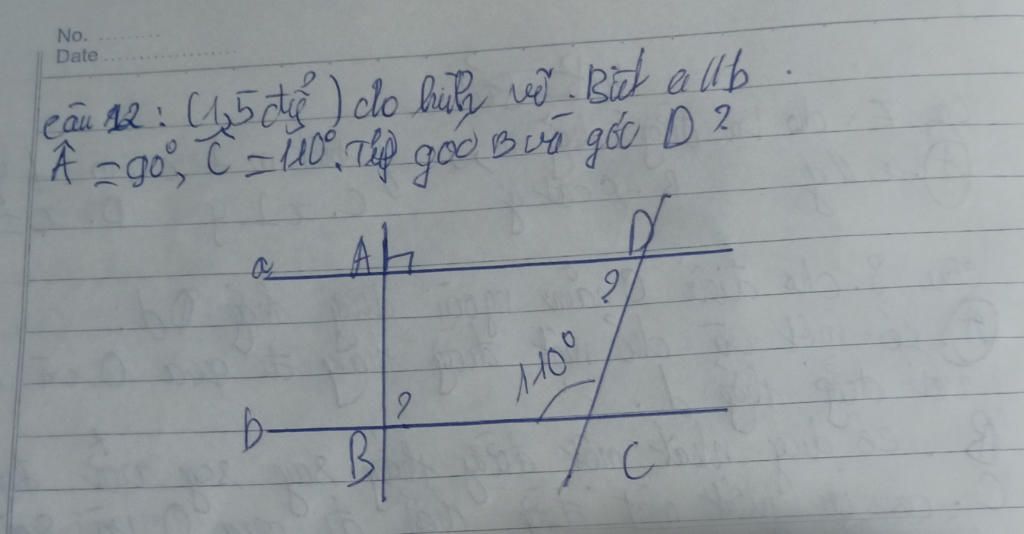 No. ..........
Date ......................
câu 12: (1,5 điể) cho hình vẽ. Biết a//b.
Â = 90°, Ĉ = 110°. Tíh góc B và góc D?
a A D
?
110°
b ?
B C